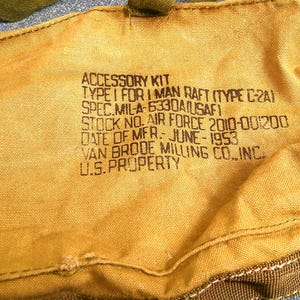 ACCESSORY KIT
TYPE I FOR 1 MAN RAFT (TYPE C-2A)
SPEC. MIL-A-6330A (USAF)
STOCK NO. AIR FORCE 2010-001200
DATE OF MFR.- JUNE - 1953
VAN BRODE MILLING CO., INC.
U.S. PROPERTY